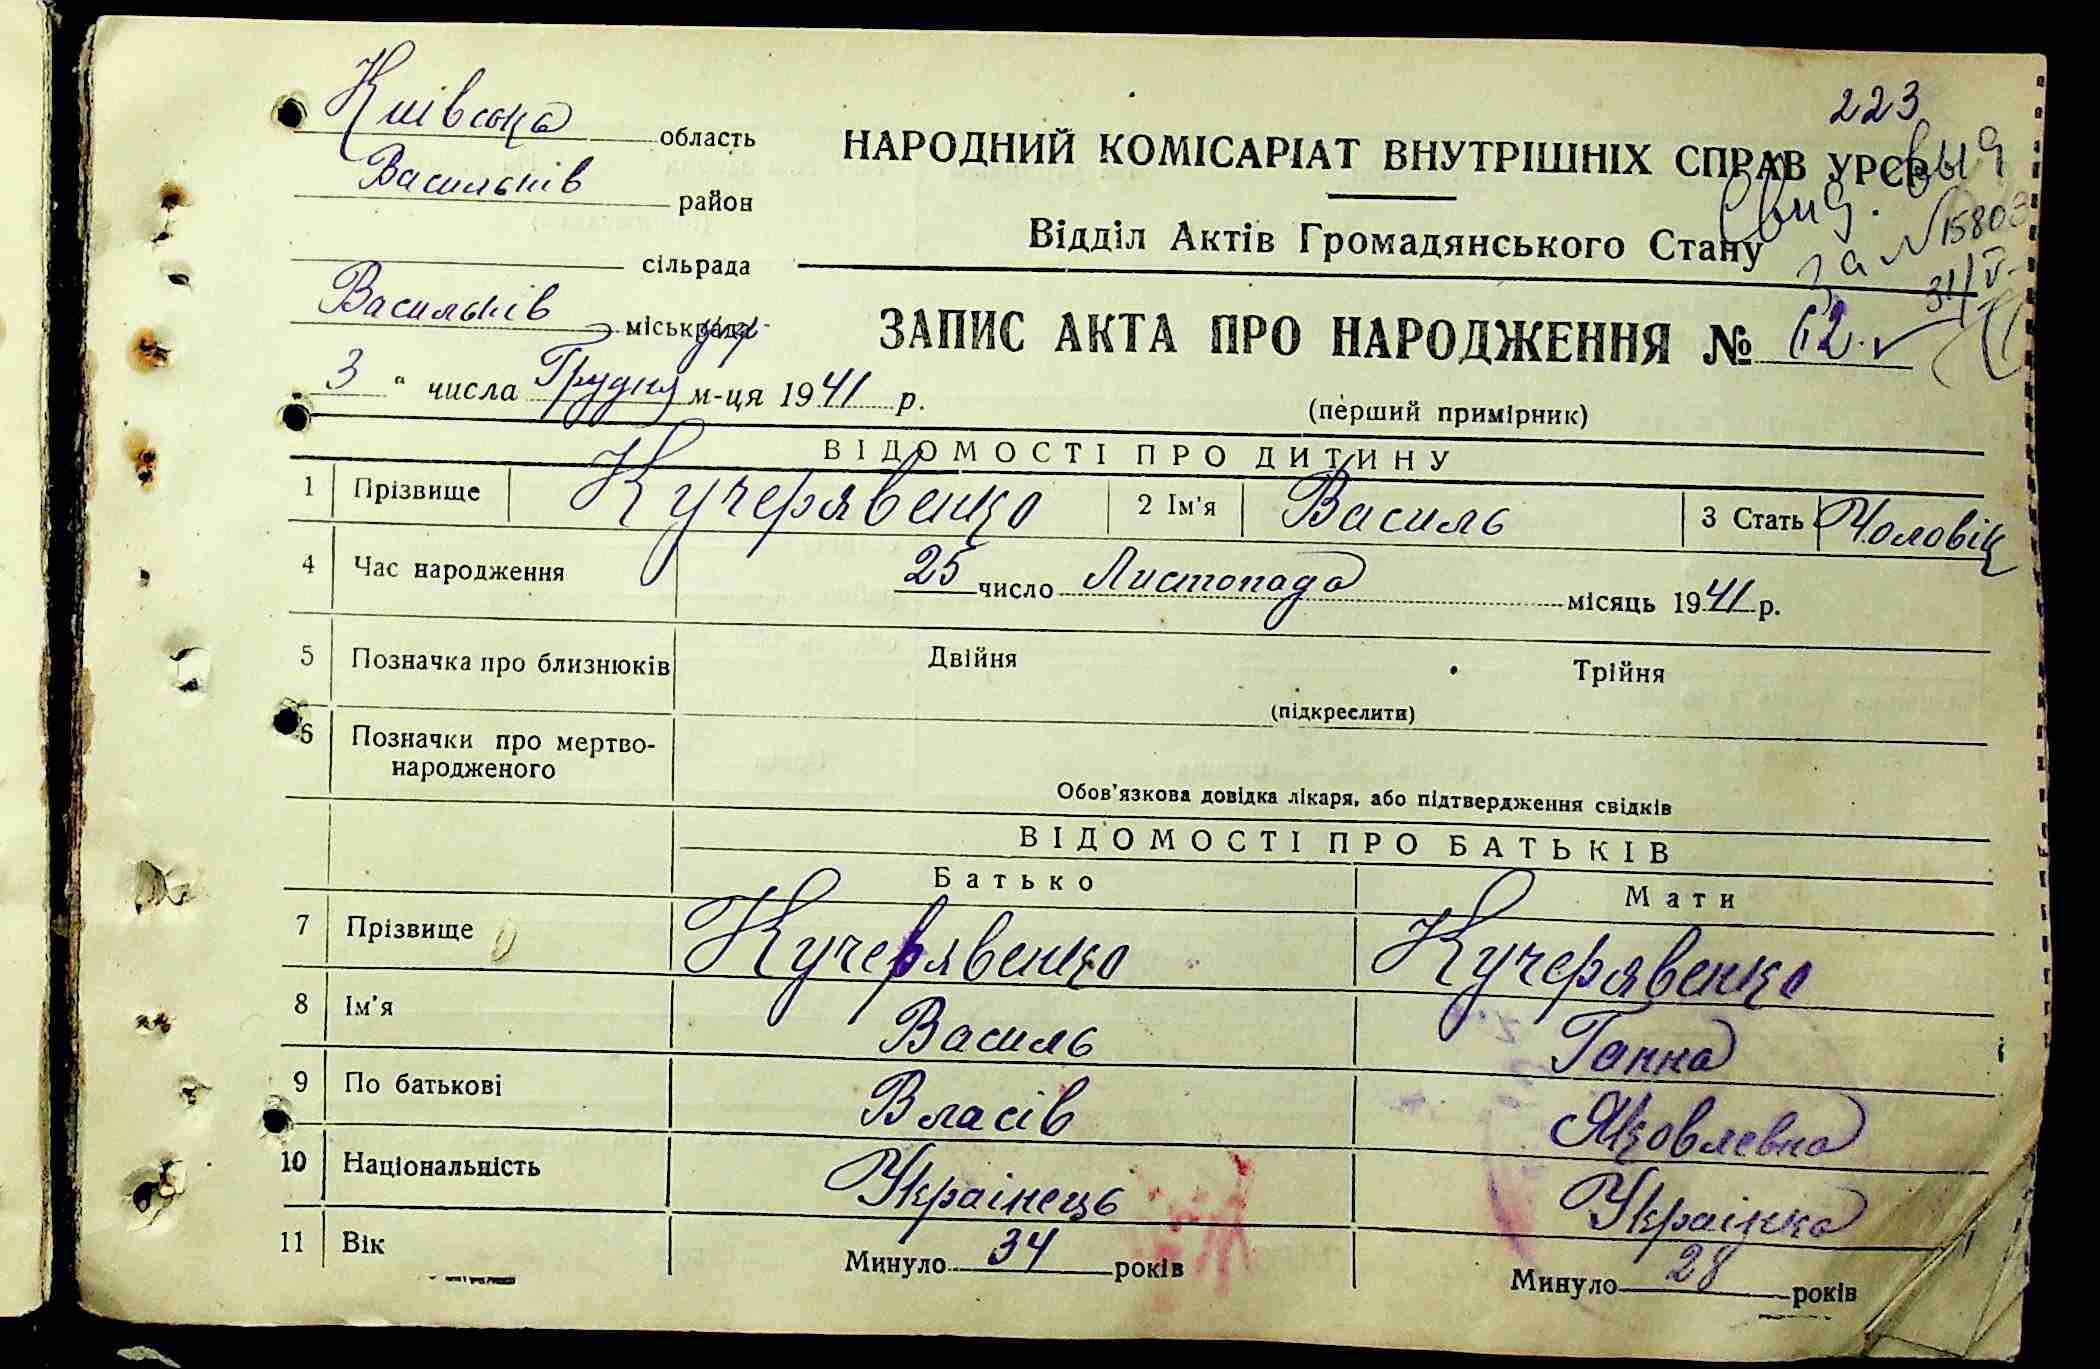 223
Київська область
Васильків район
сільрада
Васильків міськрада
НАРОДНИЙ КОМІСАРІАТ ВНУТРІШНІХ СПРАВ УРСР
Відділ Актів Громадянського Стану
Свид. выд
за №15803
ЗАПИС АКТА ПРО НАРОДЖЕННЯ № 62
3 " числа Грудня м-ця 1941 р.
(перший примірник)
ВІДОМОСТІ ПРО ДИТИНУ
1 Прізвище Кучерявенко 2 Ім'я Василь 3 Стать Чоловік
4 Час народження 25 число Листопада місяць 1941 р.
5 Позначка про близнюків Двійня Трійня
(підкреслити)
6 Позначки про мертво-
народженого
Обов'язкова довідка лікаря, або підтвердження свідків
ВІДОМОСТІ ПРО БАТЬКІВ
Батько Мати
7 Прізвище Кучерявенко Кучерявенко
8 Ім'я Василь Ганна
9 По батькові Власів Яковлевна
10 Національність Українець Українка
11 Вік Минуло 34 років Минуло 28 років